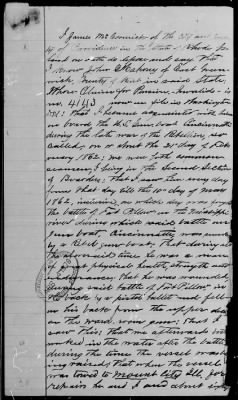 I, James McCormick of the City and Coun-
ty of Providence in the State of Rhode Is-
land on oath do depose and say that
I know John Mahoney of East Green-
wich, County of Kent in said State,
Whose Claim for Pension, Invalid- is
no. now on file in Washington
D.C.: That I became acquainted with him on
board the U.S. Gun boat Cincinnatti
during the late war of the Rebellion, so
called, on or about the 21st day of Feb-
ruary 1862; we were both common
seamen, I being in the Second
of Boarders; That I saw him every day
from that day till the 10th day of May
1862, inclusive, on which day was fought
the battle of Fort Pillow on the Mississippi
river during which said battle our
gun boat, Cincinnatti, was sunk
by a Rebel gun boat; That during all
the aforesaid time he was a man
of good physical health, strength and
appearance; that he was wounded
during said battle of Fort Pillow, in
the back by a pistol ballet and fell on
his back from the upper deck
on the ward room guns; That I
saw this; That we afterwards both
worked in the water after the battle
during the time the vessel was
being raised; That when the vessel
was towed to Mound City Ill, for
repairs he and I and about sixty